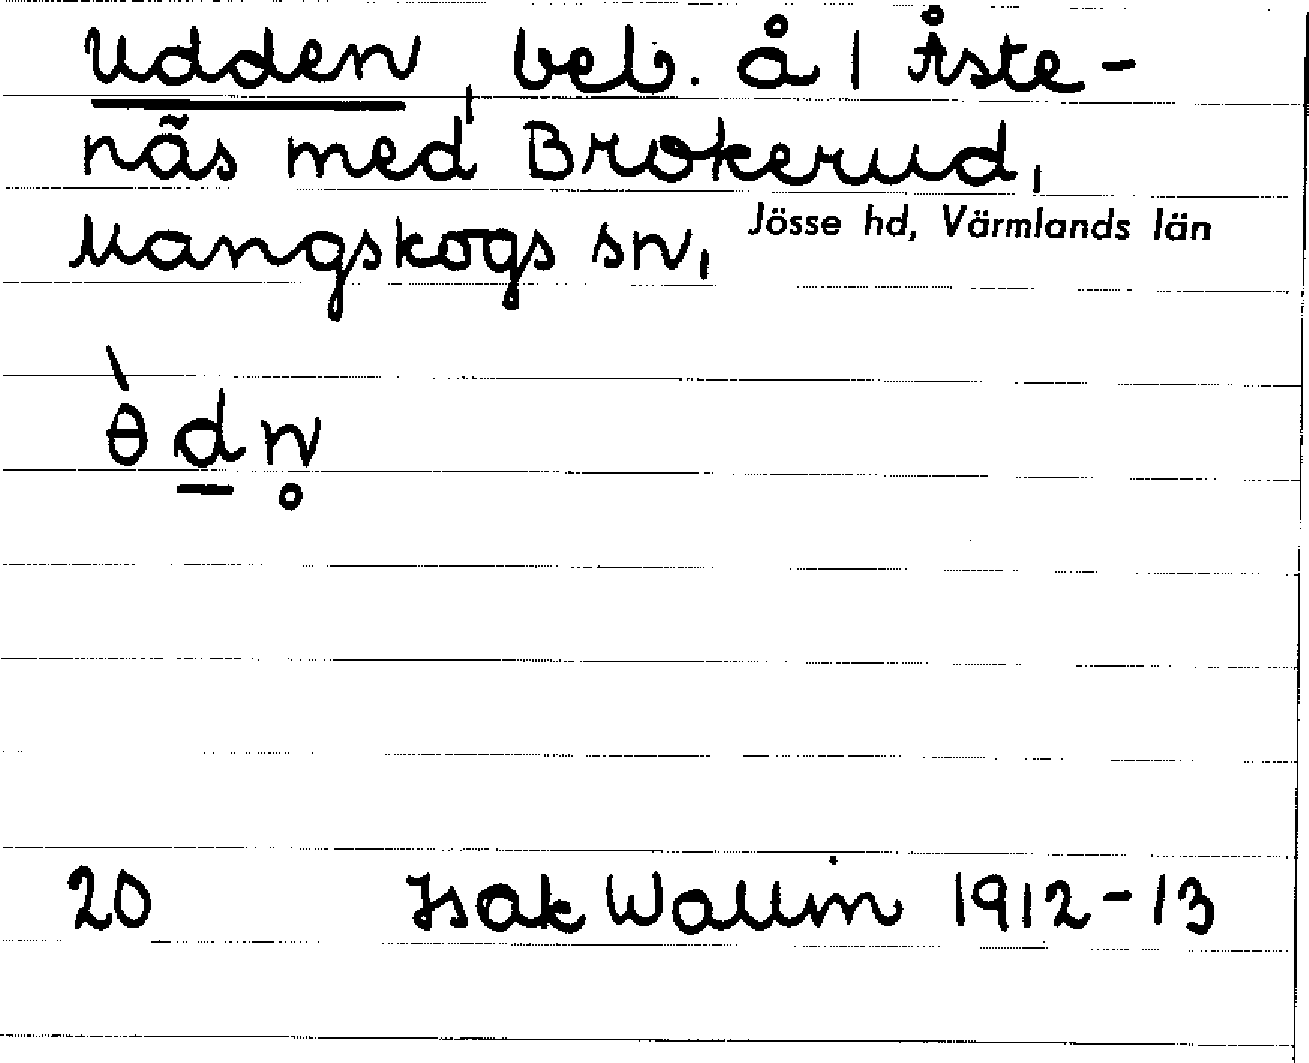 Udden, beb. å 1 Åste-
näs med Brokerud,
Mangskogs sn, Jösse hd, Värmlands län
ɵ̀d̲n̥
20 Isak Wallin 1912-13